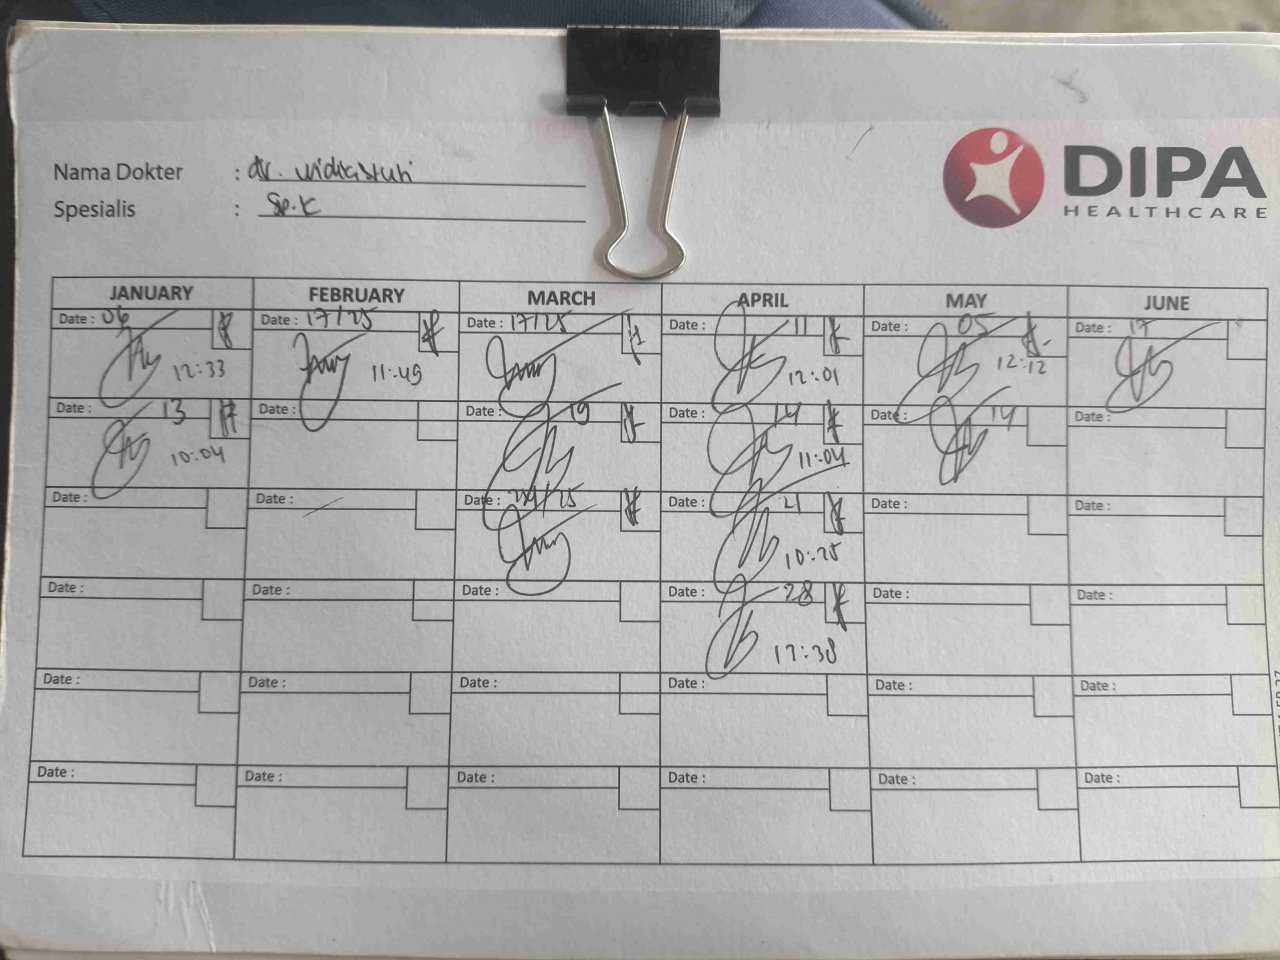 DIPA
HEALTHCARE
Nama Dokter : dr. Widiastuti
Spesialis : Sp.K
JANUARY FEBRUARY MARCH APRIL MAY JUNE
Date : 06 Date : 17/25 Date : 17/25 Date : 11 Date : 05 Date : 17
12:33 11:49 12:01 12:12
Date : 13 Date : Date : 19 Date : 14 Date : 14 Date :
10:04 11:04
Date : Date : Date : 24/25 Date : 21 Date : Date :
10:25
Date : Date : Date : Date : 28 Date : Date :
12:38
Date : Date : Date : Date : Date : Date :
Date : Date : Date : Date : Date : Date :